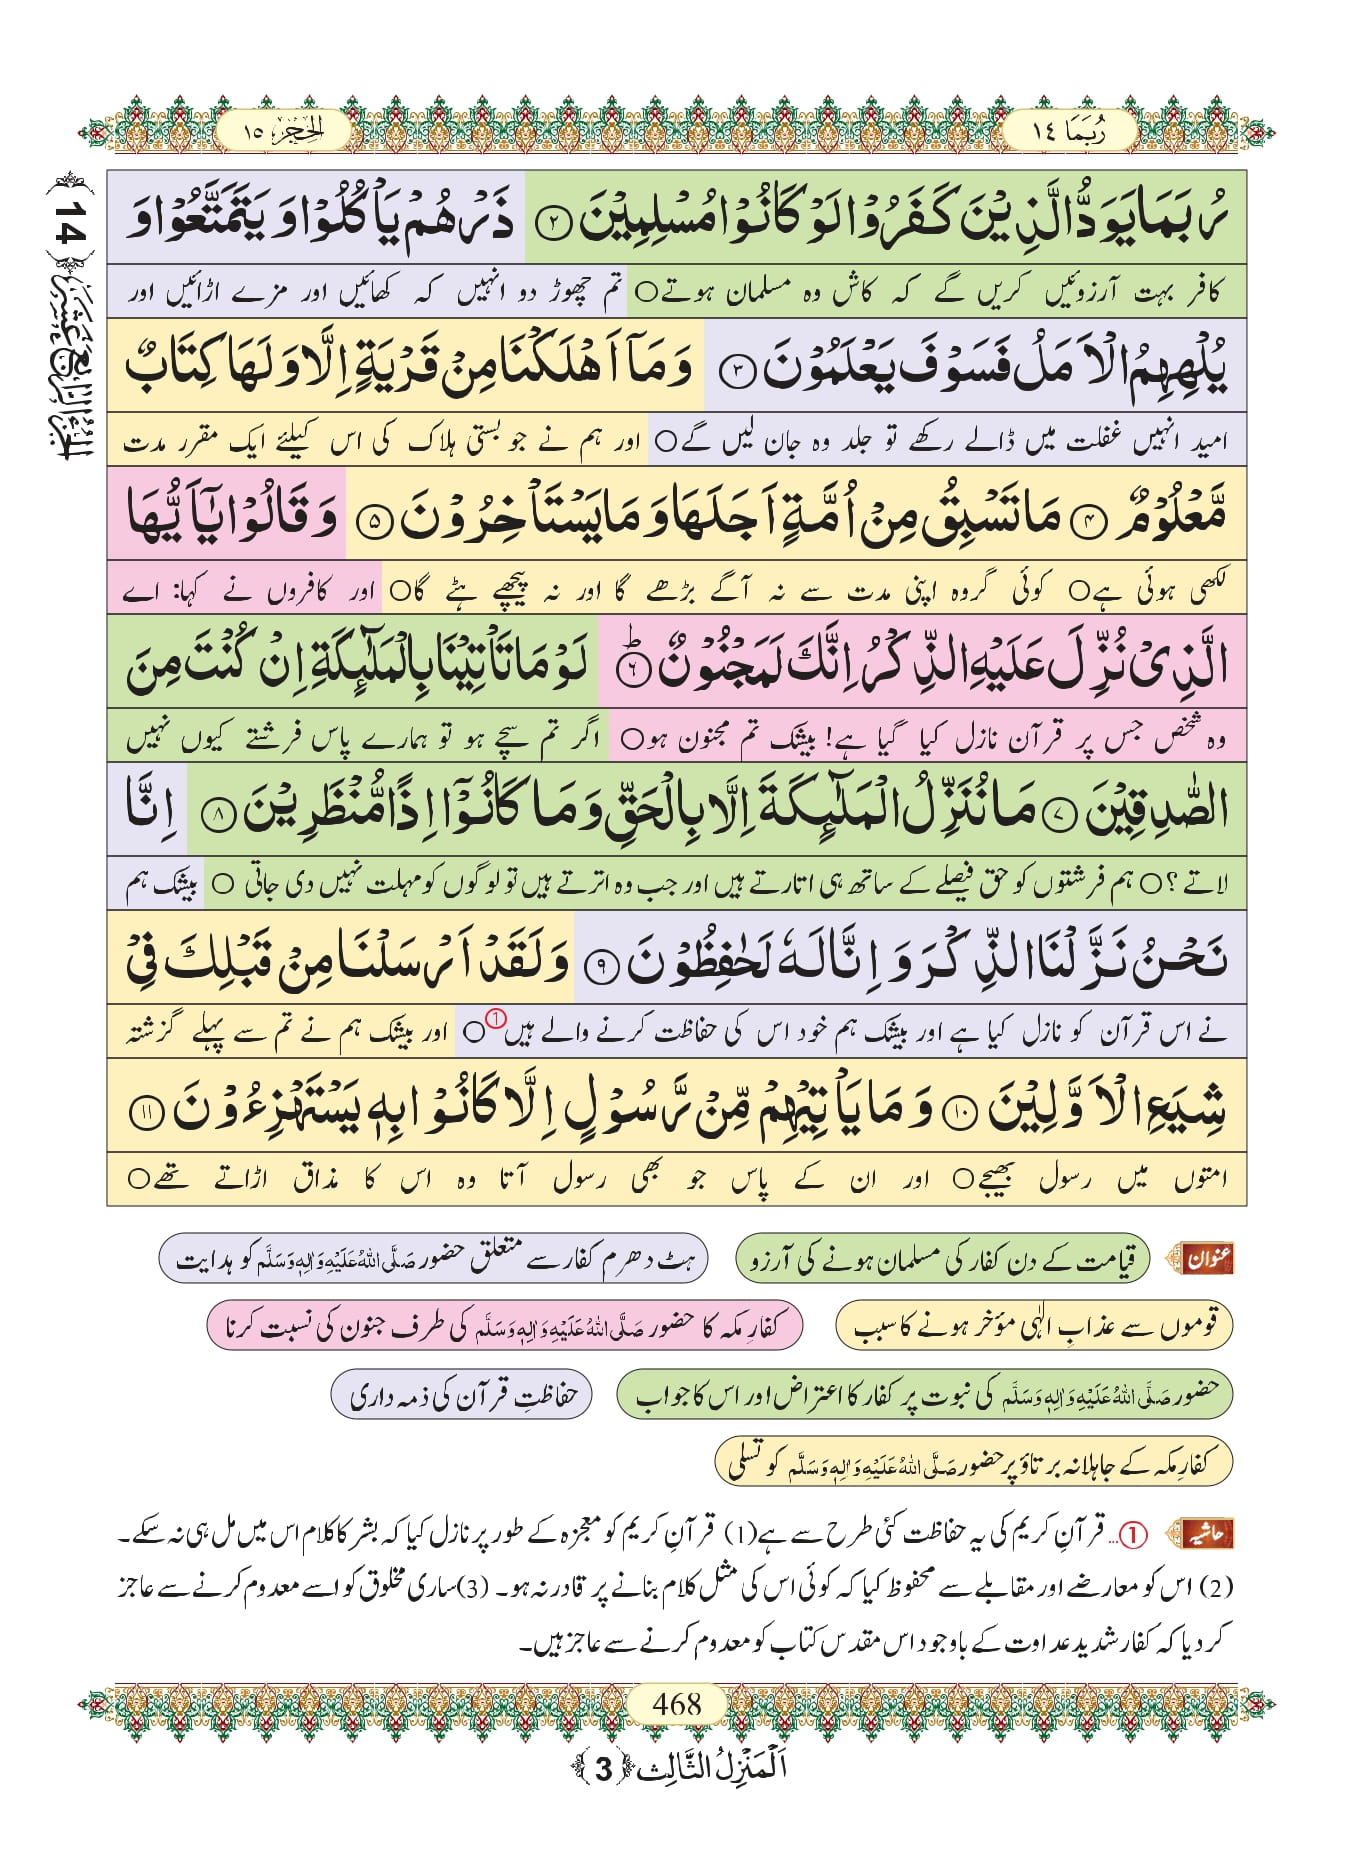 رُبَمَا ١٤
الحِجر ١٥
رُبَمَا يَوَدُّ الَّذِيْنَ كَفَرُوْا لَوْ كَانُوْا مُسْلِمِيْنَ ﴿۲﴾ ذَرْهُمْ يَاْكُلُوْا وَ يَتَمَتَّعُوْا وَ
کافر بہت آرزوئیں کریں گے کہ کاش وہ مسلمان ہوتے○ تم چھوڑ دو انہیں کہ کھائیں اور مزے اڑائیں اور
يُلْهِهِمُ الْاَمَلُ فَسَوْفَ يَعْلَمُوْنَ ﴿۳﴾ وَ مَاۤ اَهْلَكْنَا مِنْ قَرْيَةٍ اِلَّا وَ لَهَا كِتَابٌ
امید انہیں غفلت میں ڈالے رکھے تو جلد وہ جان لیں گے○ اور ہم نے جو بستی ہلاک کی اس کیلئے ایک مقرر مدت
مَّعْلُوْمٌ ﴿۴﴾ مَا تَسْبِقُ مِنْ اُمَّةٍ اَجَلَهَا وَ مَا يَسْتَاْخِرُوْنَ ﴿۵﴾ وَ قَالُوْا يٰۤاَيُّهَا
لکھی ہوئی ہے○ کوئی گروہ اپنی مدت سے نہ آگے بڑھے گا اور نہ پیچھے ہٹے گا○ اور کافروں نے کہا: اے
الَّذِيْ نُزِّلَ عَلَيْهِ الذِّكْرُ اِنَّكَ لَمَجْنُوْنٌ ؕ﴿۶﴾ لَوْ مَا تَاْتِيْنَا بِالْمَلٰٓىِٕكَةِ اِنْ كُنْتَ مِنَ
وہ شخص جس پر قرآن نازل کیا گیا ہے! بیشک تم مجنون ہو○ اگر تم سچے ہو تو ہمارے پاس فرشتے کیوں نہیں
الصّٰدِقِيْنَ ﴿۷﴾ مَا نُنَزِّلُ الْمَلٰٓىِٕكَةَ اِلَّا بِالْحَقِّ وَ مَا كَانُوْۤا اِذًا مُّنْظَرِيْنَ ﴿۸﴾ اِنَّا
لاتے؟○ ہم فرشتوں کو حق فیصلے کے ساتھ ہی اتارتے ہیں اور جب وہ اترتے ہیں تو لوگوں کو مہلت نہیں دی جاتی ○ بیشک ہم
نَحْنُ نَزَّلْنَا الذِّكْرَ وَ اِنَّا لَهٗ لَحٰفِظُوْنَ ﴿۹﴾ وَ لَقَدْ اَرْسَلْنَا مِنْ قَبْلِكَ فِيْ
نے اس قرآن کو نازل کیا ہے اور بیشک ہم خود اس کی حفاظت کرنے والے ہیں①○ اور بیشک ہم نے تم سے پہلے گزشتہ
شِيَعِ الْاَوَّلِيْنَ ﴿۱۰﴾ وَ مَا يَاْتِيْهِمْ مِّنْ رَّسُوْلٍ اِلَّا كَانُوْا بِهٖ يَسْتَهْزِءُوْنَ ﴿۱۱﴾
امتوں میں رسول بھیجے○ اور ان کے پاس جو بھی رسول آتا وہ اس کا مذاق اڑاتے تھے○
الجزء الرابع عشر ﴿14﴾
عنوان قیامت کے دن کفار کی مسلمان ہونے کی آرزو ہٹ دھرم کفار سے متعلق حضور صَلَّی اللہُ عَلَیْہِ وَاٰلِہٖ وَسَلَّم کو ہدایت
قوموں سے عذابِ الٰہی مؤخر ہونے کا سبب کفارِ مکہ کا حضور صَلَّی اللہُ عَلَیْہِ وَاٰلِہٖ وَسَلَّم کی طرف جنون کی نسبت کرنا
حضور صَلَّی اللہُ عَلَیْہِ وَاٰلِہٖ وَسَلَّم کی نبوت پر کفار کا اعتراض اور اس کا جواب حفاظتِ قرآن کی ذمہ داری
کفارِ مکہ کے جاہلانہ برتاؤ پر حضور صَلَّی اللہُ عَلَیْہِ وَاٰلِہٖ وَسَلَّم کو تسلی
حاشیہ ①... قرآنِ کریم کی یہ حفاظت کئی طرح سے ہے (1) قرآنِ کریم کو معجزہ کے طور پر نازل کیا کہ بشر کا کلام اس میں مل ہی نہ سکے۔
(2) اس کو معارضے اور مقابلے سے محفوظ کیا کہ کوئی اس کی مثل کلام بنانے پر قادر نہ ہو۔ (3) ساری مخلوق کو اسے معدوم کرنے سے عاجز
کر دیا کہ کفار شدید عداوت کے باوجود اس مقدس کتاب کو معدوم کرنے سے عاجز ہیں۔
468
اَلْمَنْزِلُ الثَّالِث ﴿3﴾